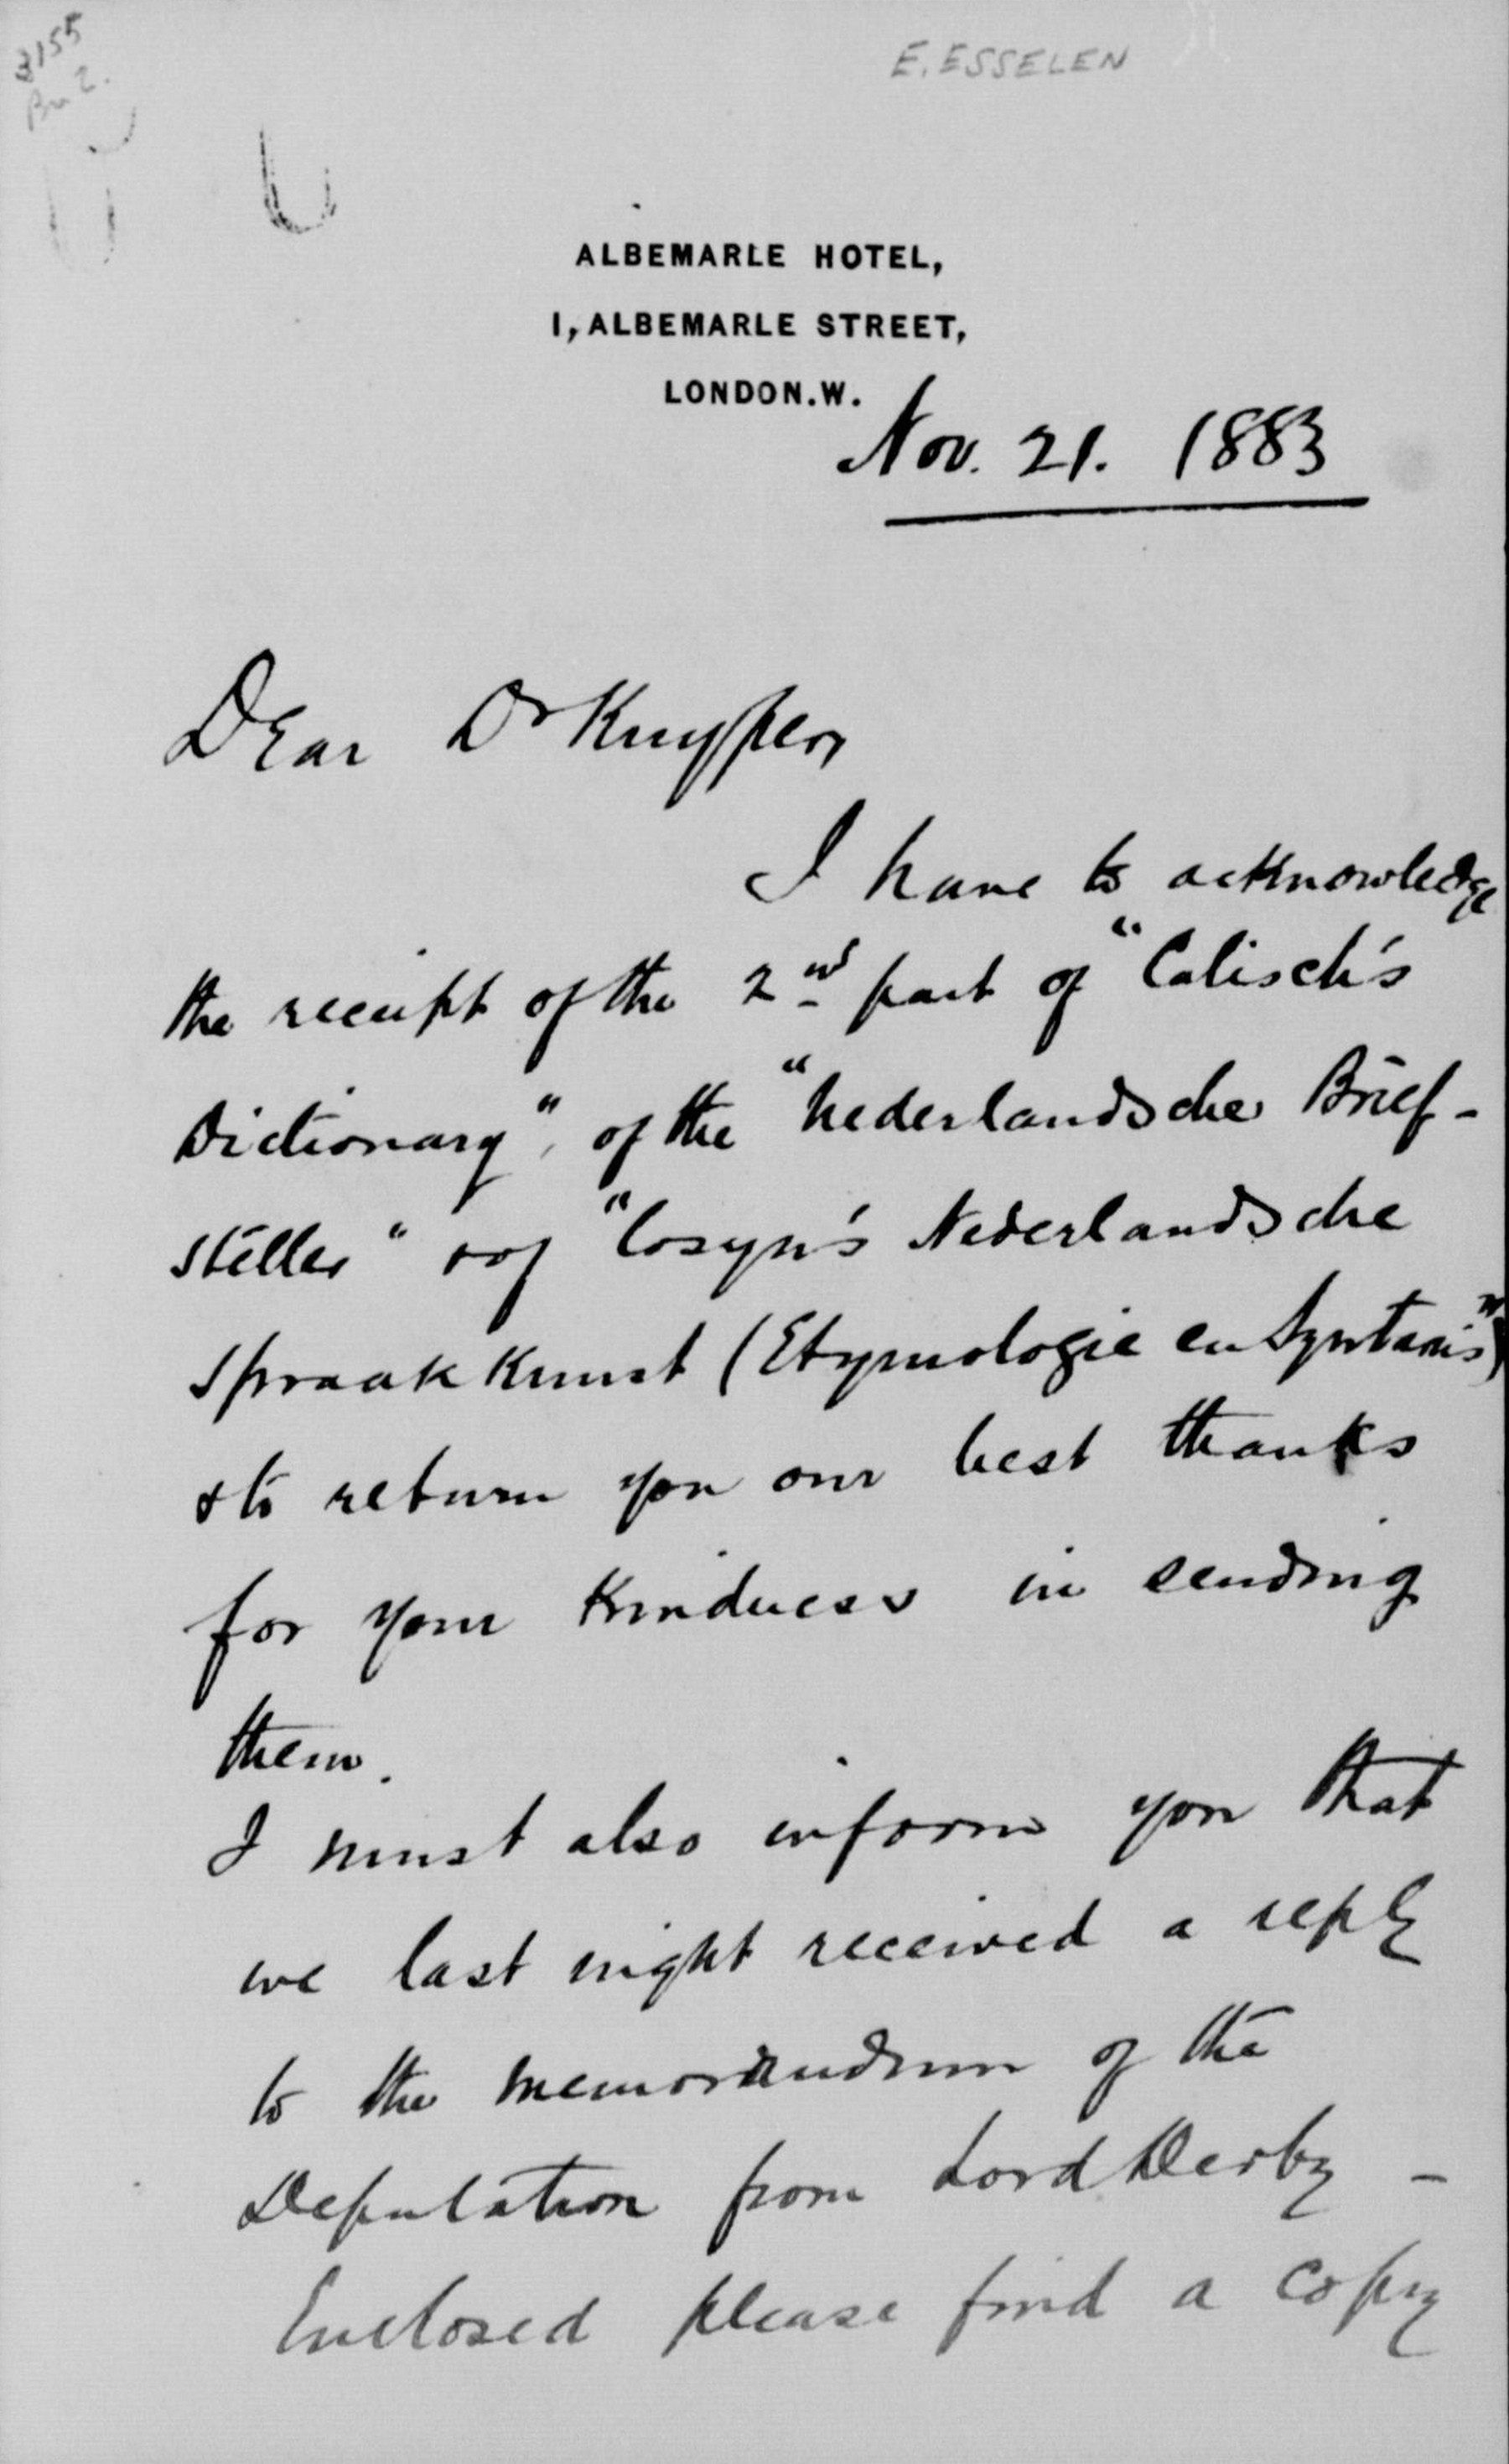 3155
Br 2.
E. ESSELEN
ALBEMARLE HOTEL,
1, ALBEMARLE STREET,
LONDON. W.
Nov. 21. 1883
Dear Dr Kuyper,
I have to acknowledge
the receipt of the 2nd part of "Calisch's
Dictionary", of the "Nederlandsche Brief-
steller" & of "Cosyn's Nederlandsche
Spraakkunst (Etymologie en Syntaxis)"
& to return you our best thanks
for your kindness in sending
them.
I must also inform you that
we last night received a reply
to the memorandum of the
Deputation from Lord Derby -
Enclosed please find a copy